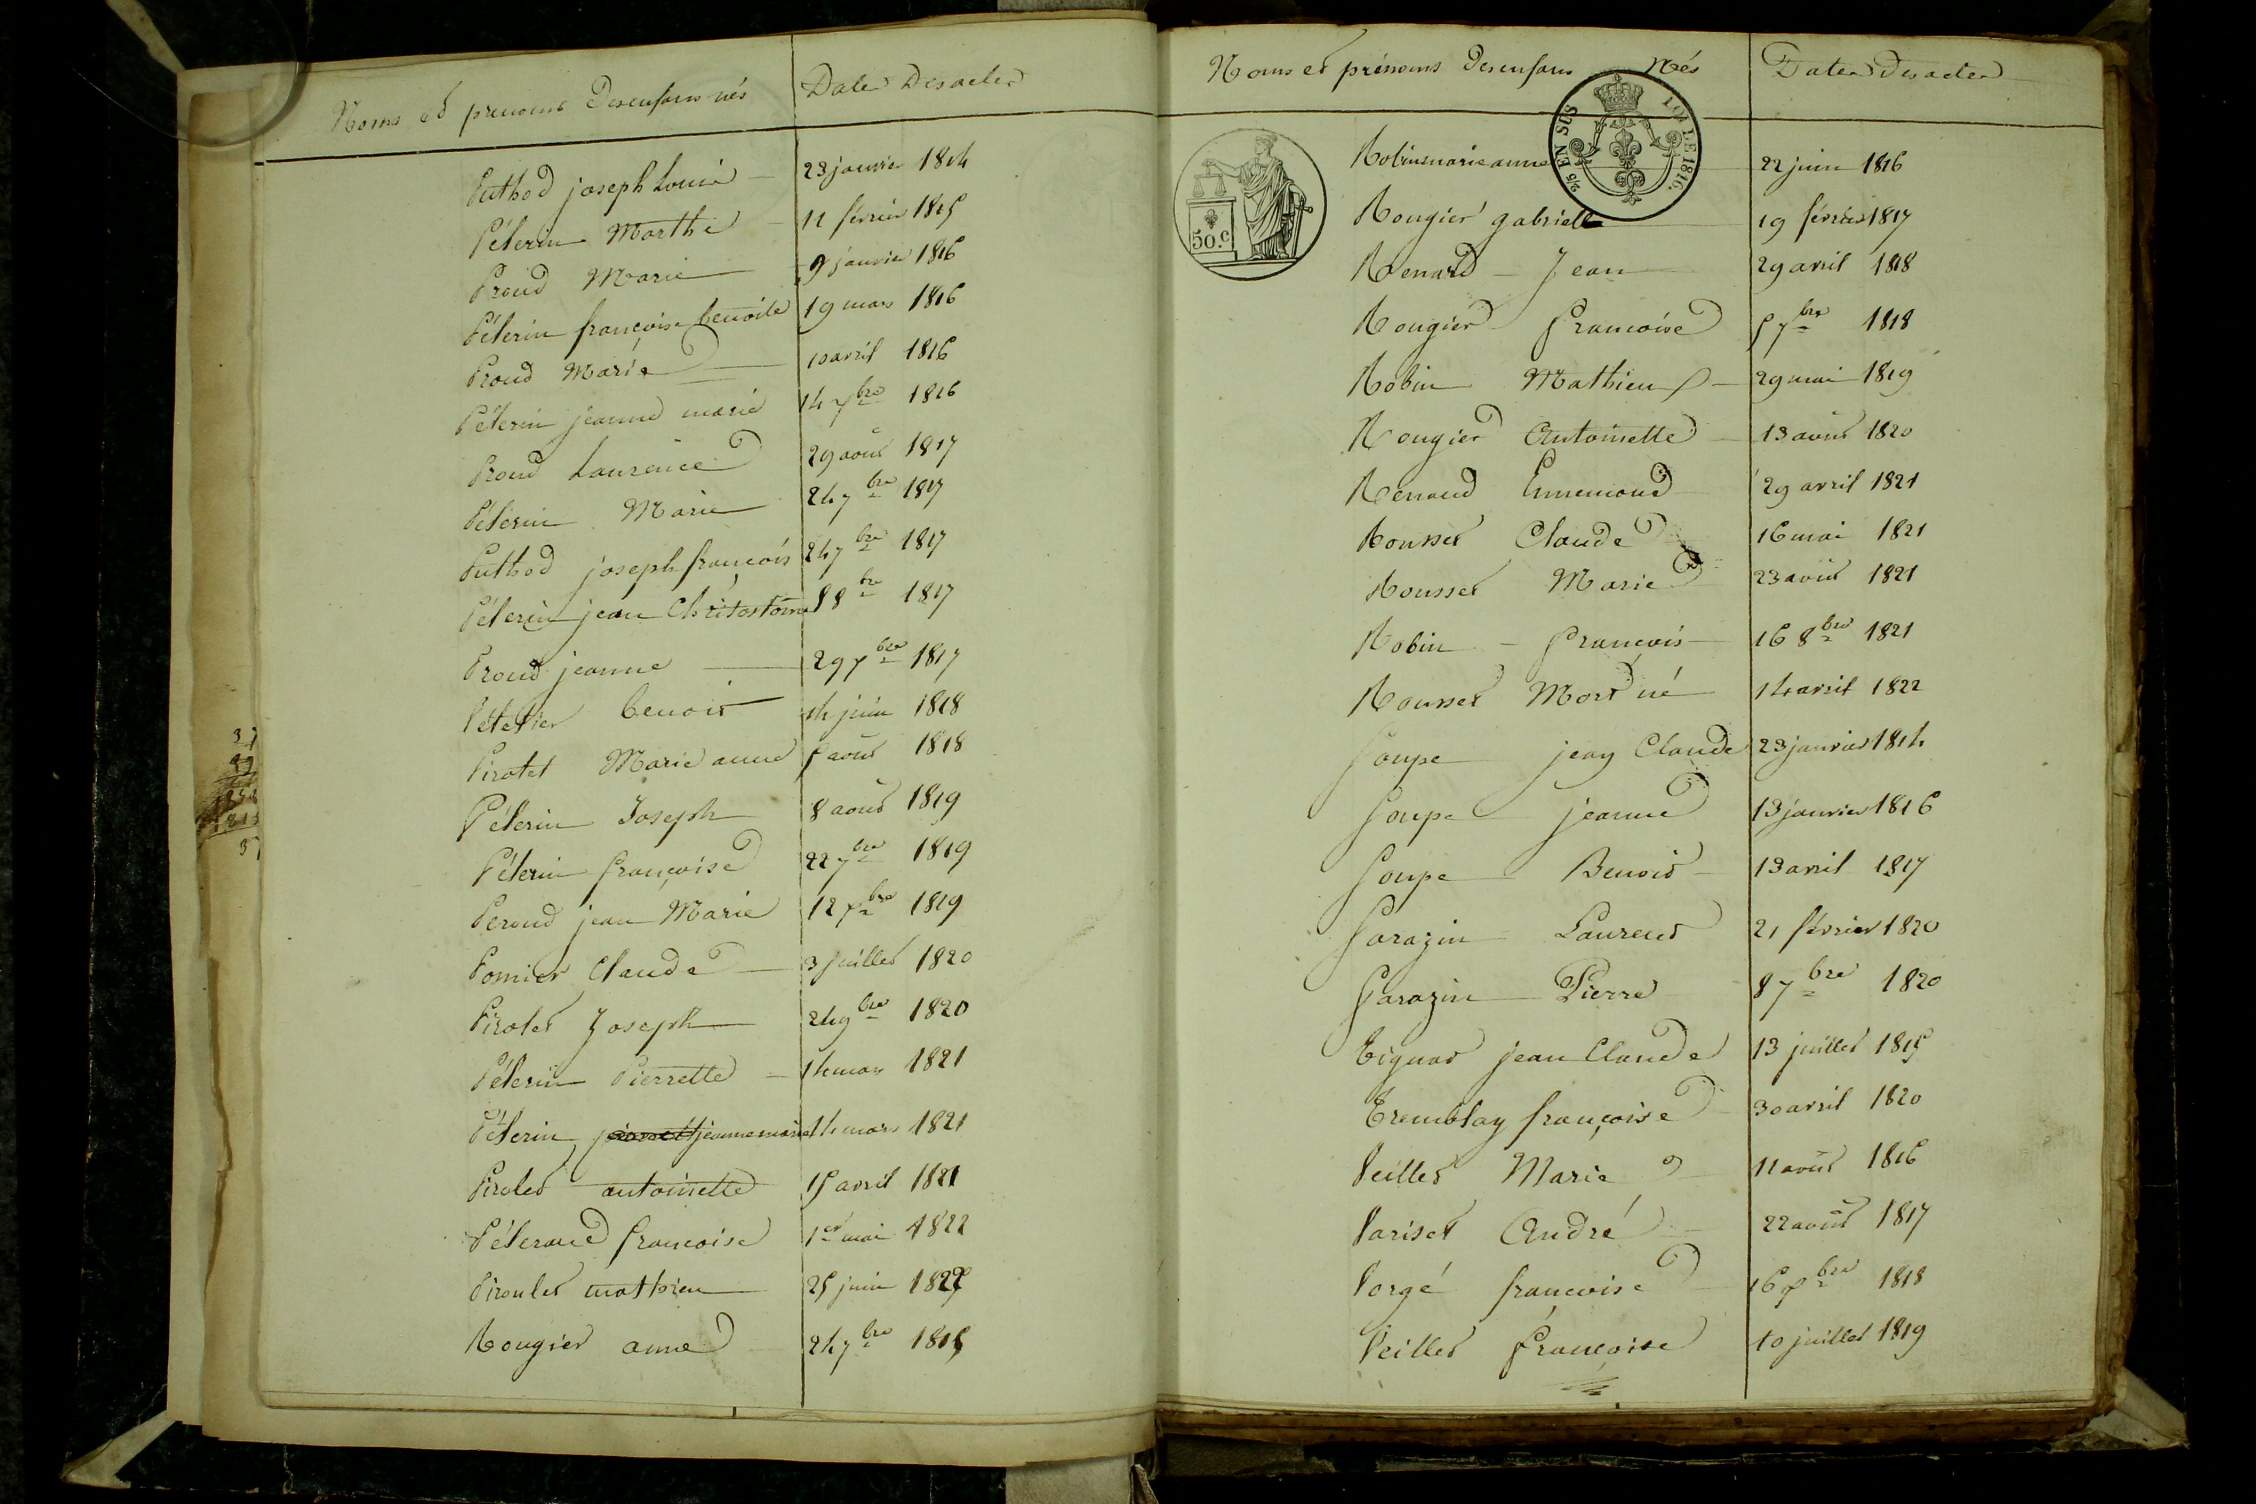 Noms et prenoms des enfans nés
Date des actes
Puthod joseph Louis 23 janvier 1814
Pélerin Marthe 11 février 1815
Proud Marie 9 janvier 1816
Pélerin françoise benoite 19 mars 1816
Proud Marie 10 avril 1816
Pélerin jeanne marie 14 7bre 1816
Proud Laurence 29 aout 1817
Pélerin Marie 24 7bre 1817
Puthod joseph françois 24 7bre 1817
Pélerin jean Chritostôme 5 8bre 1817
Proud jeanne 29 Xbre 1817
Peletier benoit 14 juin 1818
Pirolet Marie anne 5 aout 1818
Pélerin Joseph 8 aout 1819
Pélerin françoise 22 7bre 1819
Peroud jean Marie 12 Xbre 1819
Pomier Claude 3 juillet 1820
Pirolet Joseph 24 9bre 1820
Pélerin Pierrette 14 mars 1821
Pélerin jeanne marie 14 mars 1821
Pirolet antoinette 15 avril 1821
Péleraud francoise 1er mai 1822
Piroulet mathieu 25 juin 1822
Rougier anne 24 7bre 1815
Noms et prénoms des enfans Nés
Dates des actes
2/5 EN SUS
LOI DE 1816.
50.c
Robin marie anne 22 juin 1816
Rougier gabrielle 19 février 1817
Renard Jean 29 avril 1818
Rougier francoise 5 7bre 1818
Robin Mathieu 29 mai 1819
Rougier Antoinette 13 aout 1820
Renaud Ennemond 29 avril 1821
Rousset Claude 16 mai 1821
Rousset Marie 23 aout 1821
Robin François 16 8bre 1821
Rousset Mort né 14 avril 1822
Soupe jean Claude 23 janvier 1814
Soupe jeanne 13 janvier 1816
Soupe Benoit 13 avril 1817
Sarazin Laurent 21 février 1820
Sarazin Pierre 8 7bre 1820
Tignat jean Claude 13 juillet 1815
Tremblay françoise 30 avril 1820
Veillet Marie 11 aout 1816
Variset André 22 aout 1817
Vorgé francoise 16 Xbre 1818
Veillet Françoise 10 juillet 1819